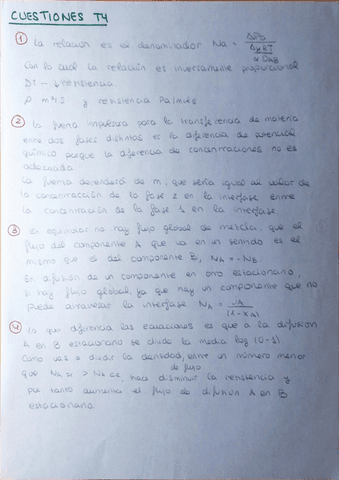 CUESTIONES T4
① La relación es el denominador NA =
Con lo cual la relación es inversamente proporcional
DT — ↓ resistencia.
② La fuerza impulsora para la transferencia de materia
entre dos fases distintas es la diferencia de potencial
químico porque la diferencia de concentraciones no es
adecuada.
La fuerza dependerá de m, que sería igual al valor de
la concentración de la fase 2 en la interfase entre
la concentración de la fase 1 en la interfase.
③ La equimolar no hay flujo global de mezcla, que el
flujo del componente A que va en un sentido es el
mismo que el del componente B, NA = - NB
En difusión de un componente en otro estacionario,
si hay flujo global, ya que hay un componente que no
puede atravesar la interfase NA = JA / (1 - XA)
④ Lo que diferencia las ecuaciones es que a la difusión
A en B estacionario se divide la media log (0-1)
Como vas a dividir la densidad, entre un número menor
de flujo
que NA > NA, hace disminuir la resistencia y
por tanto aumenta el flujo de difusión A en B
estacionario.